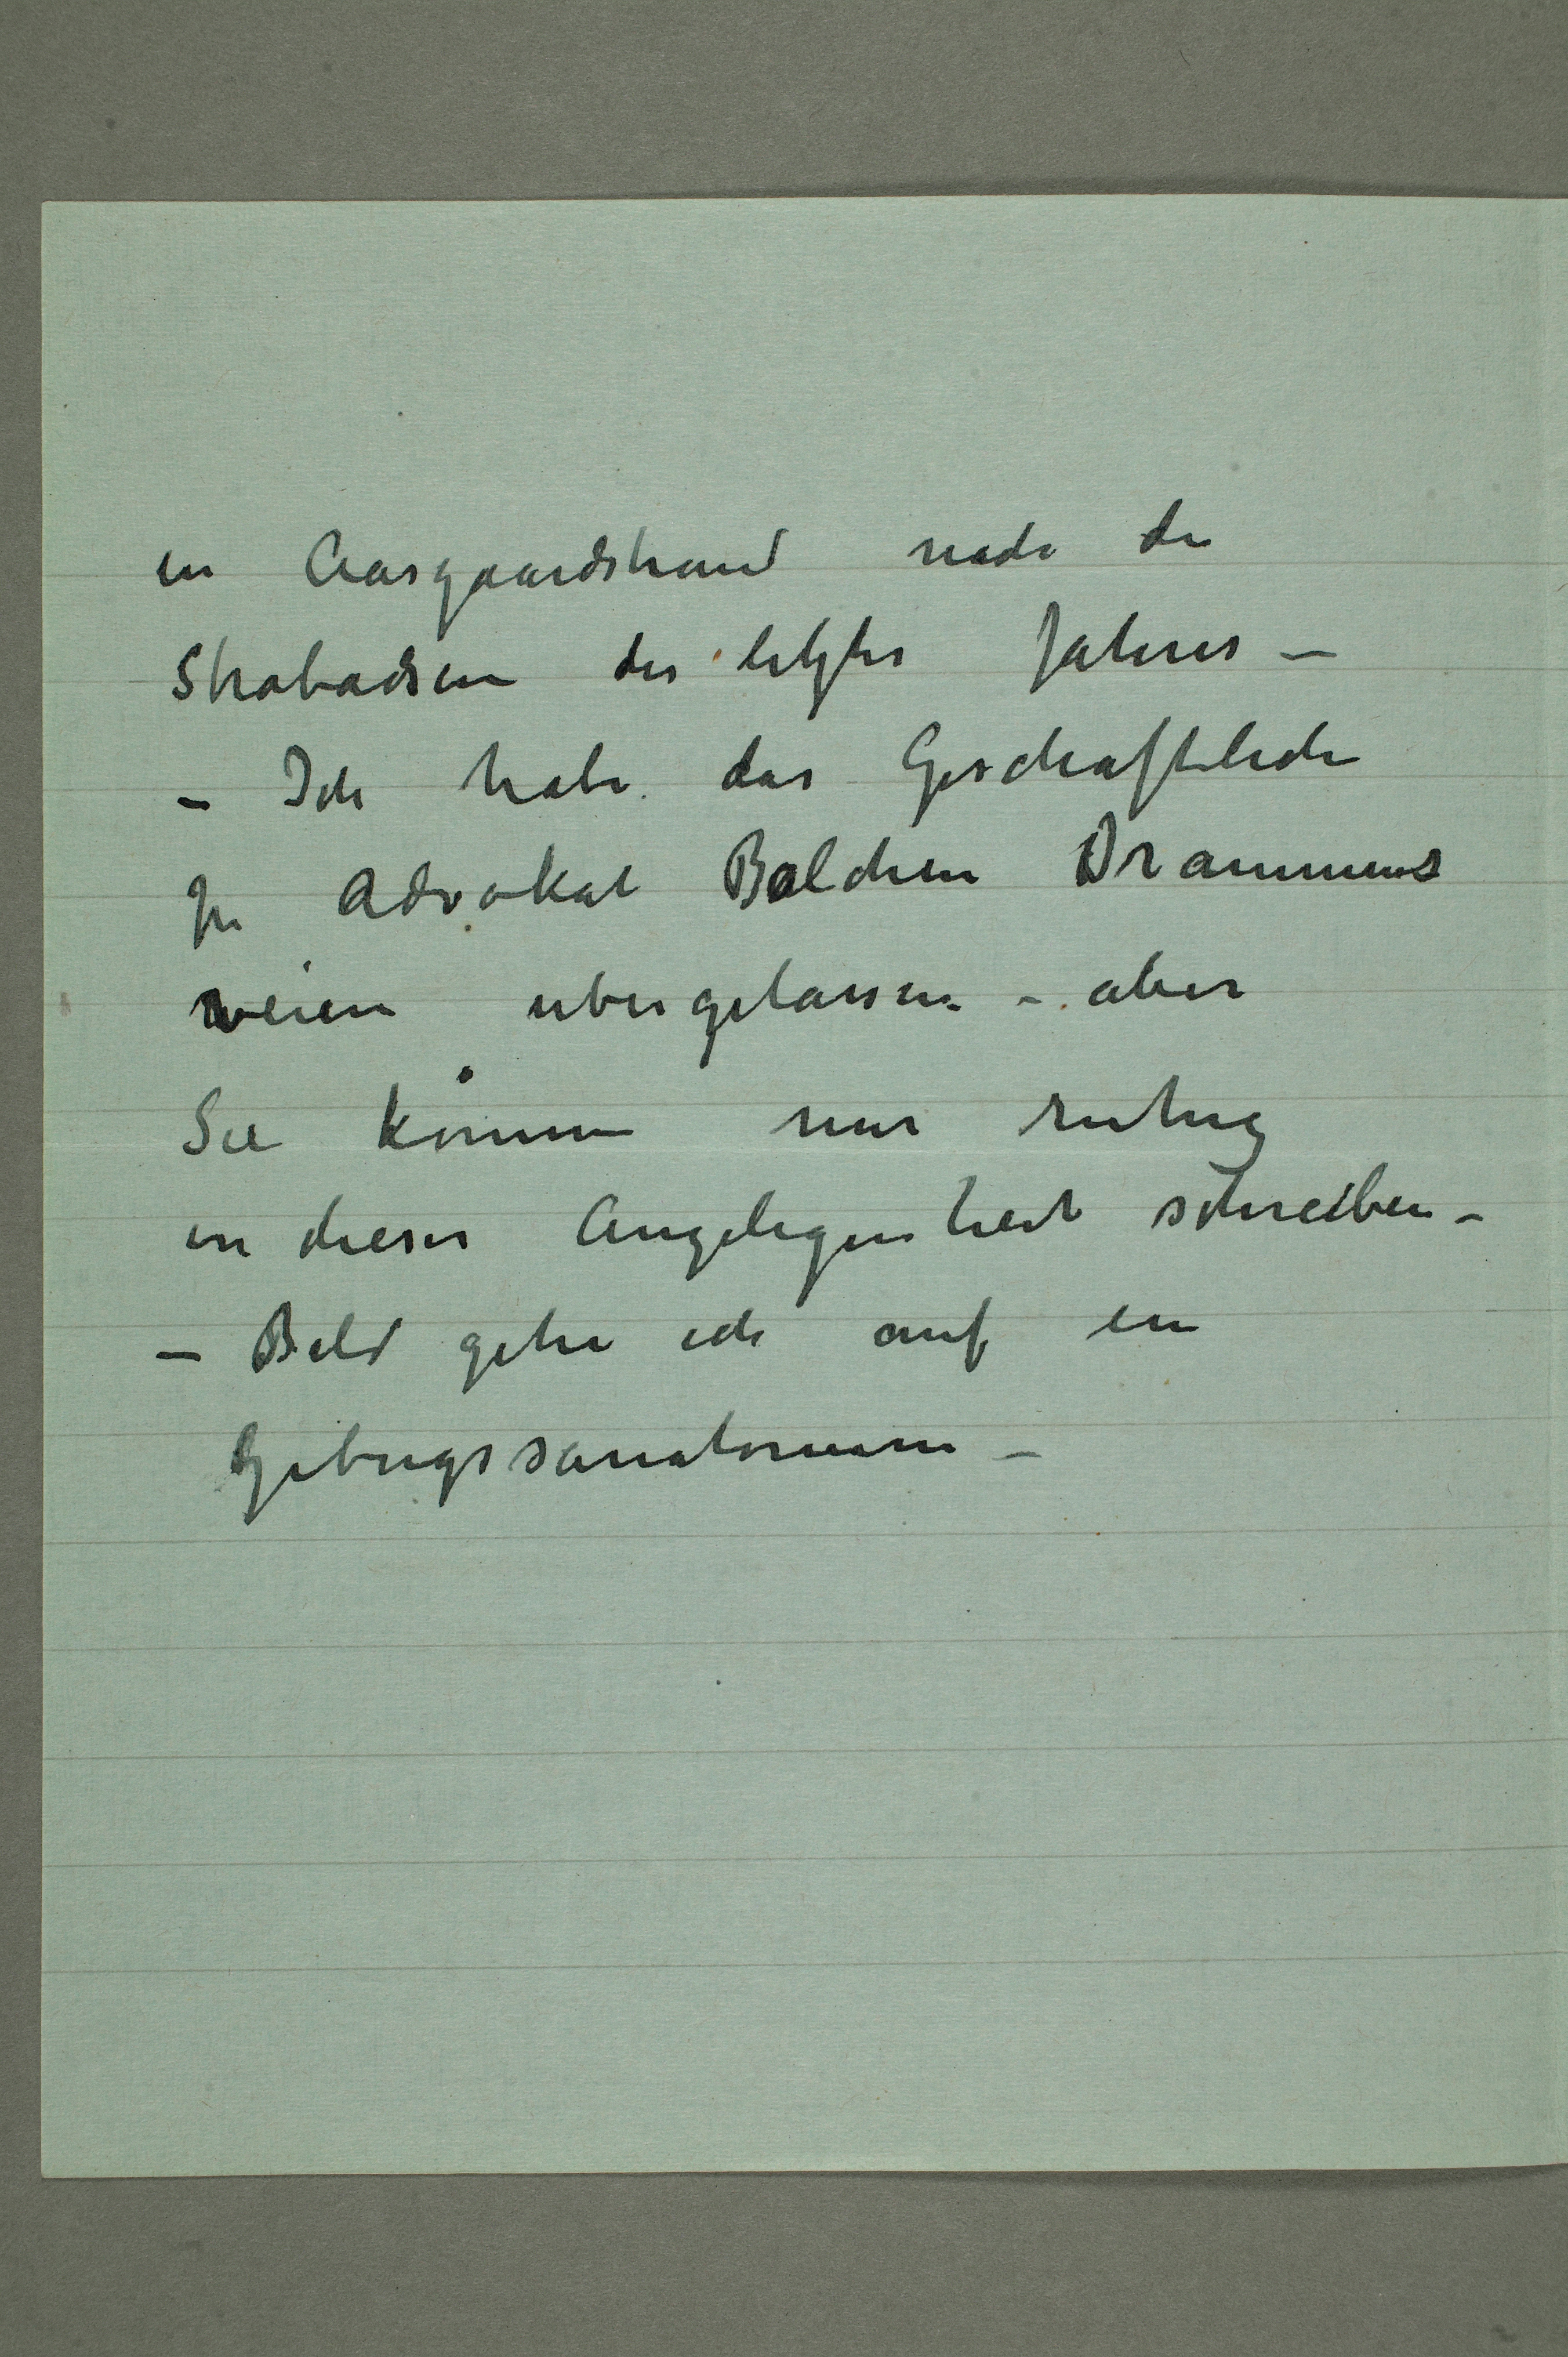 in Aasgaardstrand nach den
Strabadsen des letzten Jahres –
– Ich habe das Geschaftliche
zu Advokat Bolchen Drammens
veien ubergelassen – aber
Sie können nur ruhig
in dieser Angelegenheit schreiben –
– Bald gehe ich auf ein
Gebirgssanatorium –